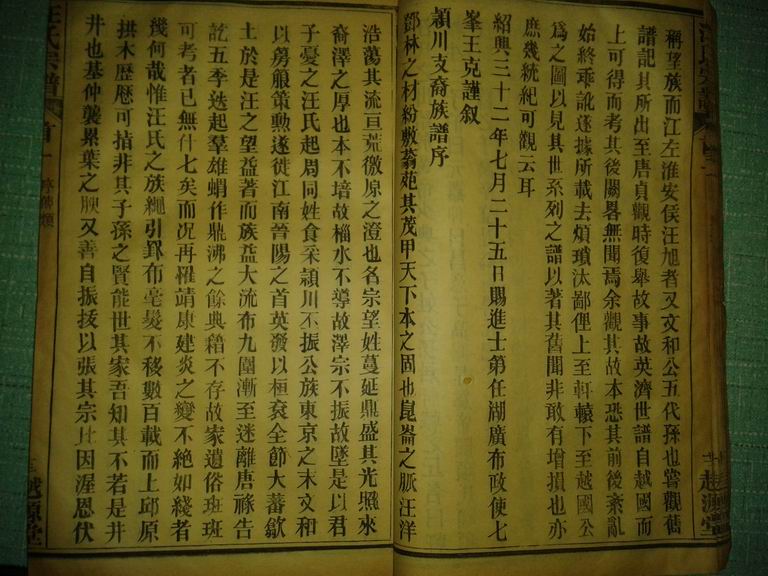 稱望族而江左淮安侯汪旭者又文和公五代孫也嘗觀舊
譜記其所出至唐貞觀時復舉故事故英濟世譜自越國而
上可得而考其後闕畧無聞焉余觀其故本恐其前後紊亂
始終乖訛遂據所載去煩瑣汰鄙俚上至軒轅下至越國公
爲之圖以見其世系列之譜以著其舊聞非敢有增損也亦
庶幾統紀可觀云耳
紹興三十二年七月二十五日賜進士第任湖廣布政使七
峯王克謹叙
潁川支裔族譜序
鄧林之材紛敷蓊苑其茂甲天下本之固也崑崙之脈汪洋
浩蕩其流亘荒徼原之澄也名宗望姓蔓延鼎盛其光照來
裔澤之厚也本不培故榴水不導故澤宗不振故墜是以君
子憂之汪氏起周同姓食采潁川不振公族東京之末文和
以勇服策勲遂徙江南晉陽之首英發以桓袞全節大蕃歙
土於是汪之望益著而族益大流布九圍漸至迷離唐祿告
訖五季迭起羣雄蝟作鼎沸之餘典籍不存故家遺俗班班
可考者已無什七矣而况再罹靖康建炎之變不絶如綫者
幾何哉惟汪氏之族繩引羿布毫髮不移數百載而上邱原
拱木歷歷可掿非其子孫之賢能世其家吾知其不若是井
井也基仲襲累葉之腴又善自振拔以張其宗比因渥恩伏
汪氏宗譜
首一
越源堂